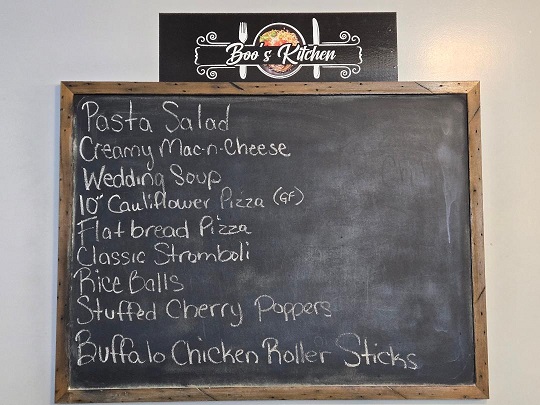 Boo's Kitchen
Pasta Salad
Creamy Mac-n-Cheese
Wedding Soup
10" Cauliflower Pizza (GF)
Flatbread Pizza
Classic Stromboli
Rice Balls
Stuffed Cherry Poppers
Buffalo Chicken Roller Sticks